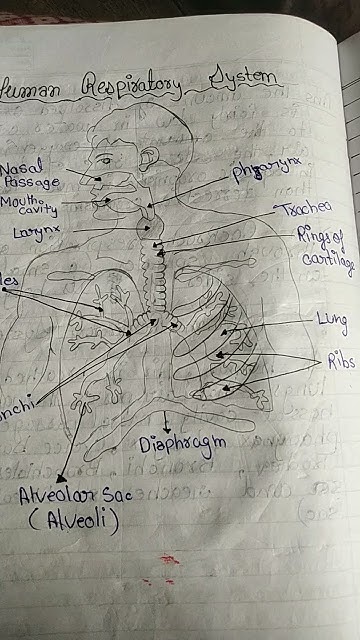 Human Respiratory System
Nasal
Passage
Mouth
cavity
Larynx
Pharynx
Trachea
Rings of
cartilage
Lung
Ribs
Diaphragm
Alveolar Sac
(Alveoli)